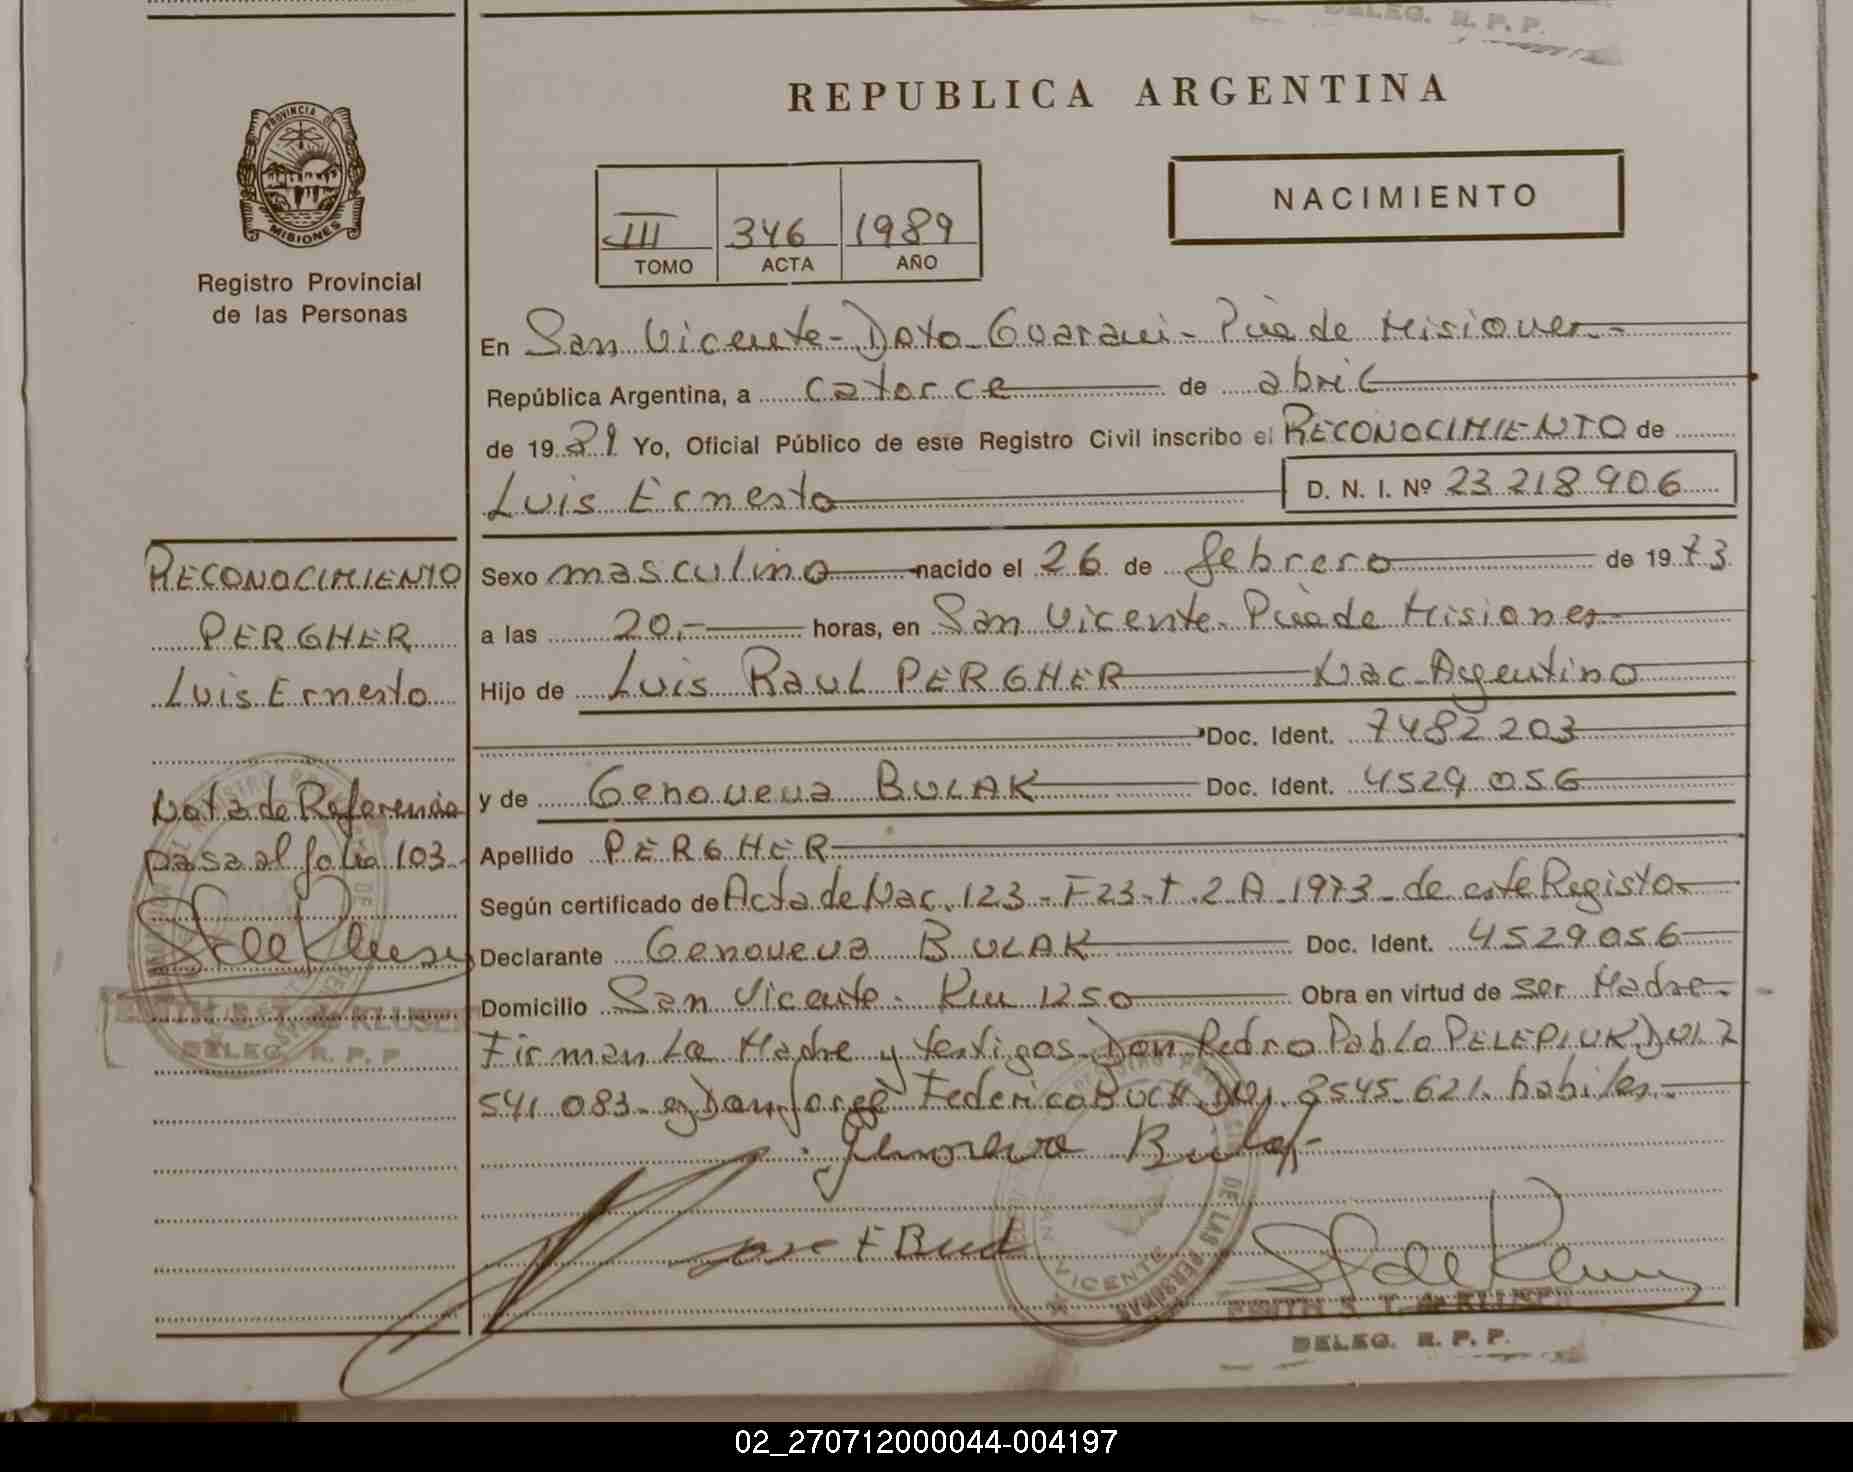 DELEG. R. P. P.
REPUBLICA ARGENTINA
PROVINCIA DE
MISIONES
Registro Provincial
de las Personas
NACIMIENTO
III 346 1989
TOMO ACTA AÑO
En San Vicente - Dpto. Guarani - Pcia de Misiones
República Argentina, a catorce de abril
de 1989 Yo, Oficial Público de este Registro Civil inscribo el RECONOCIMIENTO de
Luis Ernesto D. N. I. Nº 23 218 906
RECONOCIMIENTO
PERGHER
Luis Ernesto
Nota de Referencia
pasa al folio 103.
EDITH S. T. de KLUSEN
DELEG. R. P. P.
Sexo masculino nacido el 26 de febrero de 1973
a las 20,- horas, en San Vicente. Pcia de Misiones
Hijo de Luis Raul PERGHER Nac. Argentino
Doc. Ident. 7482 203
y de Genoveva BULAK Doc. Ident. 4529 056
Apellido PERGHER
Según certificado de Acta de Nac. 123 - F 23 - T. 2 A. 1973 - de este Registo
Declarante Genoveva BULAK Doc. Ident. 4529056
Domicilio San Vicente. Km 1250 Obra en virtud de ser Madre
Firman La Madre y testigos Don Pedro Pablo PELEPIUK DNI 7
541 083 - y Don Jorge Federico BUCH DNI 8545.621. habiles.-
Genoveva Bulak
VICENTE
DE LAS PERSONAS
EDITH S. T. de KLUSEN
DELEG. R. P. P.
02_270712000044-004197